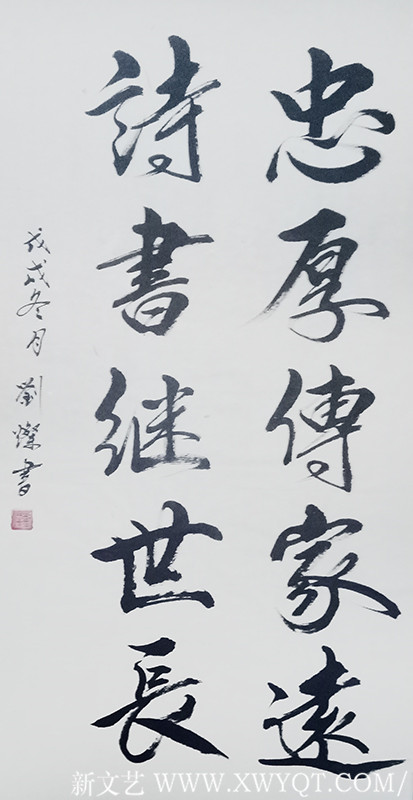 忠厚傳家遠
詩書继世長
戊戌冬月劉燦書
新文艺 WWW.XWYQT.COM/